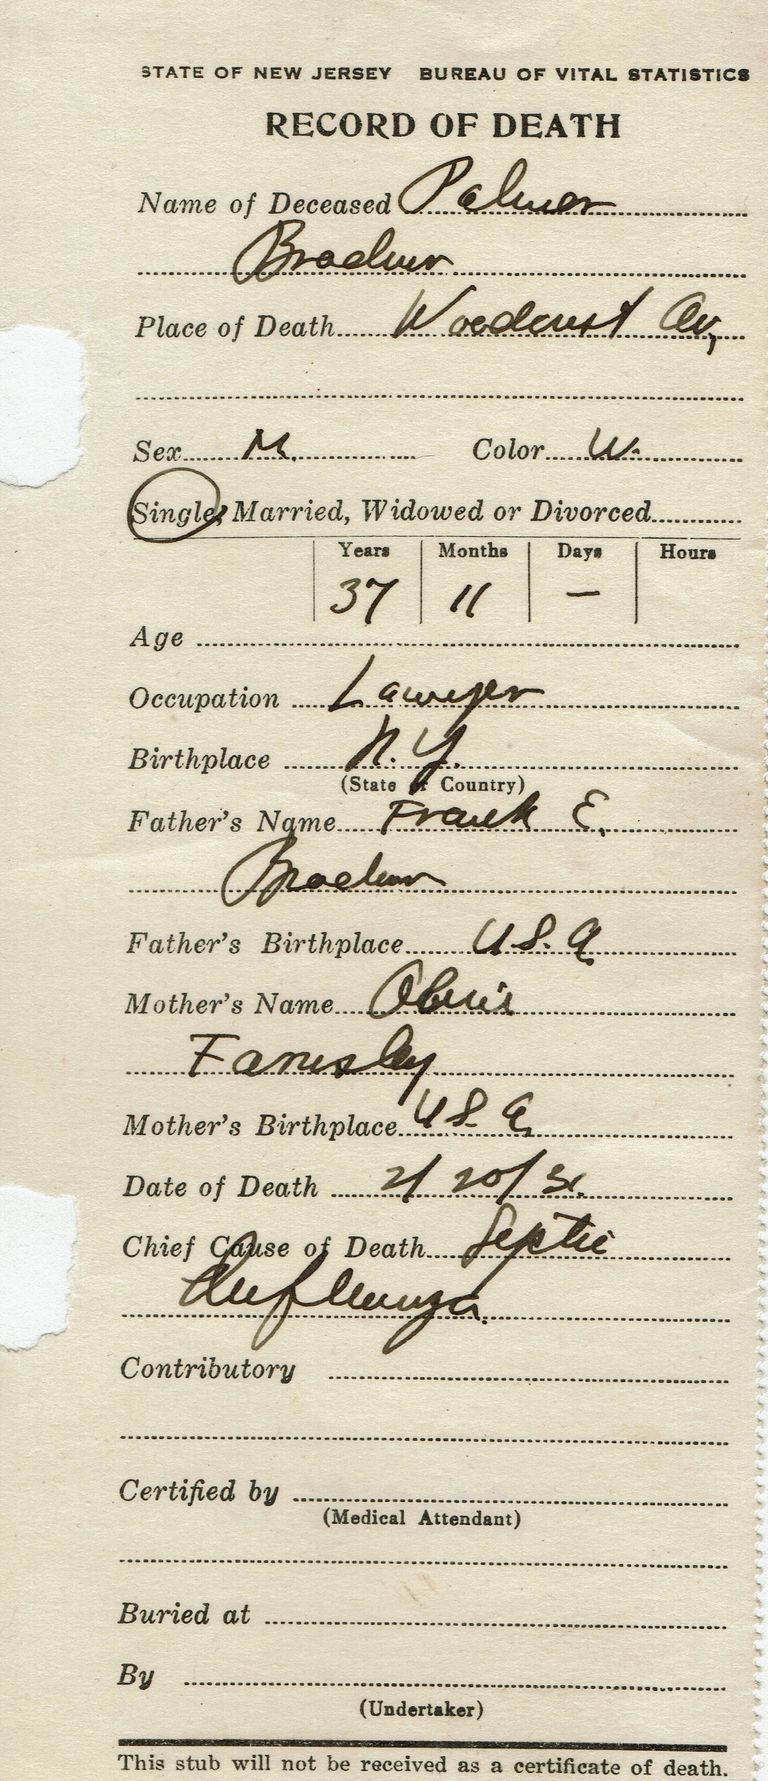 STATE OF NEW JERSEY BUREAU OF VITAL STATISTICS
RECORD OF DEATH
Name of Deceased Palmer
Place of Death Woodcrest Av,
Sex M. Color W.
Single, Married, Widowed or Divorced
Years Months Days Hours
37 11 —
Age
Occupation Lawyer
Birthplace N.Y.
(State or Country)
Father's Name Frank E.
Father's Birthplace U.S.A
Mother's Name
Mother's Birthplace U.S.A.
Date of Death 2/20/31.
Chief Cause of Death Septic
Influenza.
Contributory
Certified by
(Medical Attendant)
Buried at
By
(Undertaker)
This stub will not be received as a certificate of death.